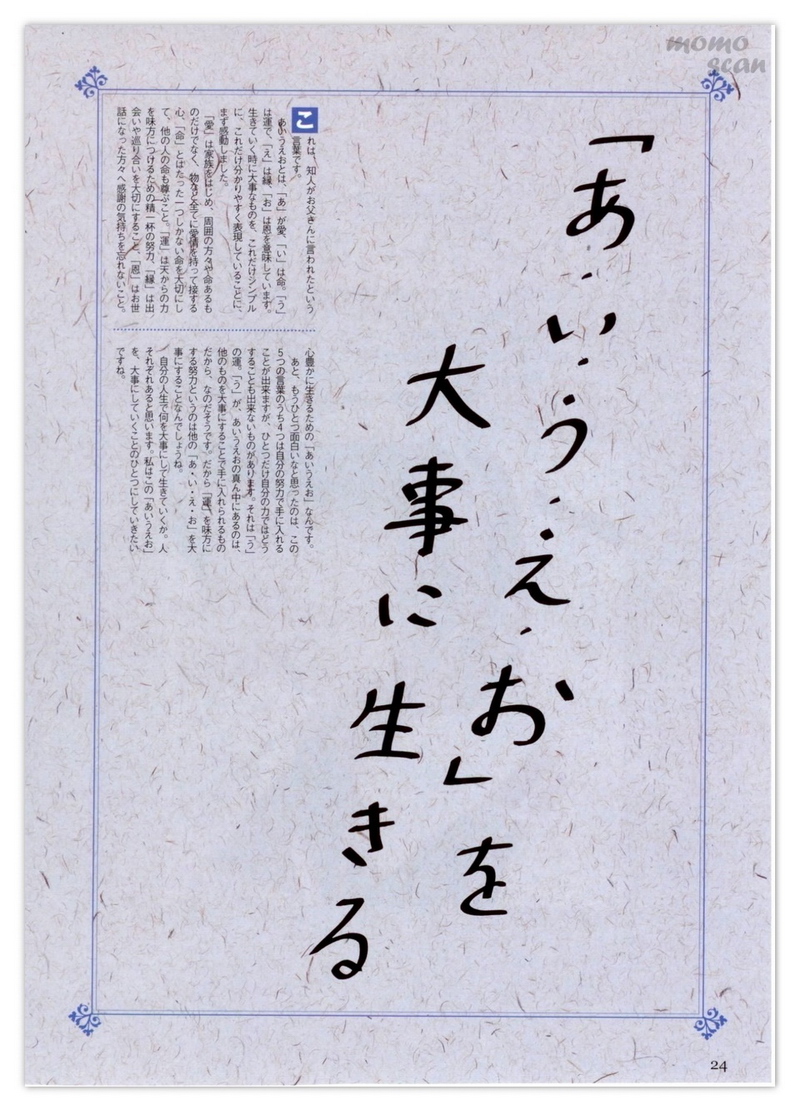 momo
scan
「あ・い・う・え・お」を
大事に生きる
これは、知人がお父さんに言われたという
言葉です。
あいうえおとは、「あ」が愛、「い」は命。「う」
は運で、「え」は縁、「お」は恩を意味しています。
生きていく時に大事なものを、これだけシンプル
に、これだけ分かりやすく表現していることに、
まず感動しました。
「愛」は家族をはじめ、周囲の方々や命あるも
のだけでなく、物など全てに愛情を持って接する
心、「命」とはたった一つしかない命を大切にし
て、他の人の命も尊ぶこと。「運」は天からの力
を味方につけるための精一杯の努力、「縁」は出
会いや巡り合いを大切にすること、「恩」はお世
話になった方々へ感謝の気持ちを忘れないこと。
心豊かに生きるための「あいうえお」なんです。
あと、もうひとつ面白いなと思ったのは、この
5つの言葉のうち4つは自分の努力で手に入れる
ことが出来ますが、ひとつだけ自分の力ではどう
することも出来ないものがあります。それは「う」
の運。「う」が、あいうえおの真ん中にあるのは、
他のものを大事にすることで手に入れられるもの
だから、なのだそうです。だから「運」を味方に
する努力というのは他の「あ・い・え・お」を大
事にすることなんでしょうね。
自分の人生で何を大事にして生きていくか。人
それぞれあると思います。私はこの「あいうえお」
を、大事にしていくことのひとつにしていきたい
ですね。
24